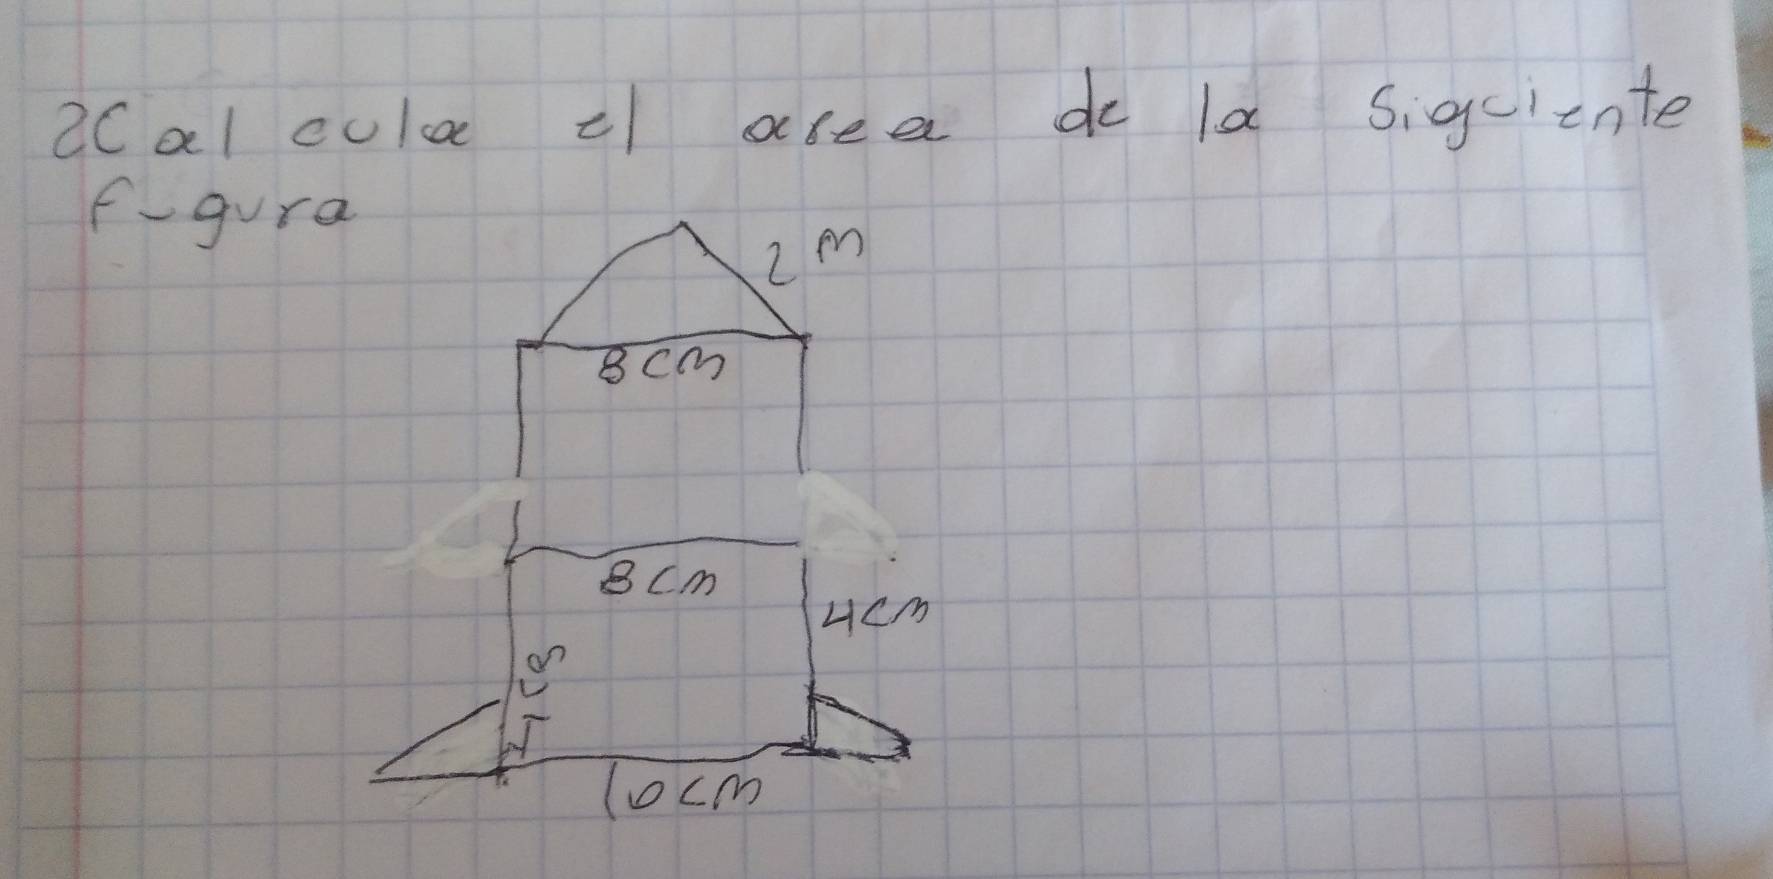 2Calcula el area de la siguiente
figura
2 m
8cm
8cm
4cm
4cm
10cm